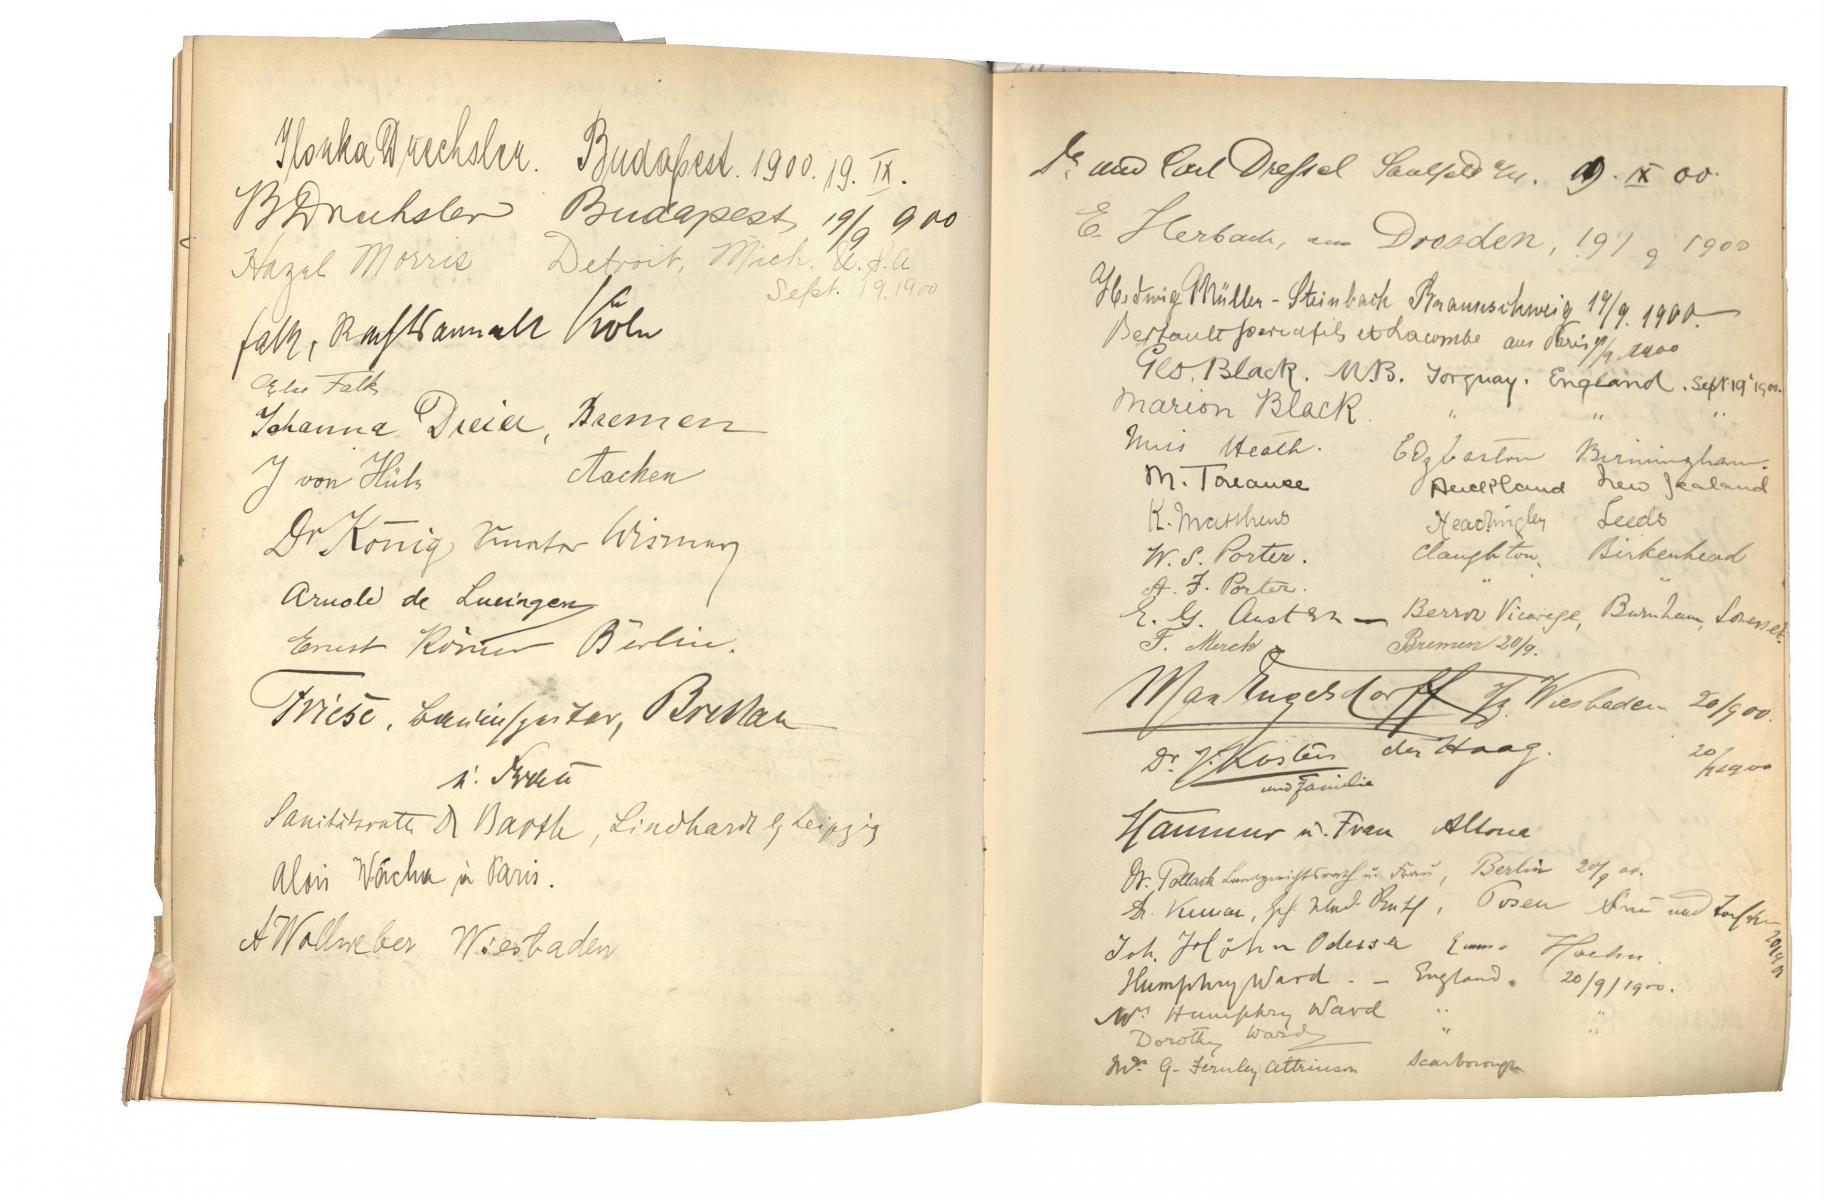 Ilonka Drechsler. Budapest. 1900. 19. IX.
B Drechsler Budapest, 19/9 900
Hazel Morris Detroit, Mich. U.S.A
Sept. 19, 1900
Falk, Rechtsanwalt Köln
Else Falk
Johanna Dreier, Bremen
J von Hüls Aachen
Dr König, Senator Wismar
Arnold de
Ernst Körner Berlin.
Friese, Bauinspector, Breslau
u. Frau
Sanitätsrath Dr Barth, Lindhardt b/ Leipzig
Alois Wácha à Paris.
A Wollweber Wiesbaden
und Carl Dressel Saalfeld a/S. 19. IX 00.
E. Herbach, aus Dresden, 19/9 1900
Hedwig Müller-Steinbach Braunschweig 19/9. 1900.
et Lacombe aus Paris 1900
Geo. Black. M.B. Torquay. England. Sept 19th 1900.
Marion Black " " "
Miss Heath. Edgbaston Birmingham.
M. Auckland New Zealand
K. Matthews Headingley Leeds
W. S. Porter. Claughton, Birkenhead
A. F. Porter. " "
E. G. Austen — Berrow Vicarage, Burnham, Somerset.
F. Merck Bremen 20/9.
Max Engelsdorff Wiesbaden 20/9 00.
Dr. J. Kosters den Haag. 20/9 1900
und Familie
Hammer u. Frau Altona
Dr. Pollack Landgerichtsrath u. Frau, Berlin 20/9 00.
Dr. Med. Rath, Posen Frau und 20/9 00
Joh. Höhn Odessa Emma Hoehn.
Humphry Ward. — England. 20/9/1900.
Mrs Humphry Ward " "
Dorothy Ward " "
Mrs. G. Fernley Attrinson Scarborough